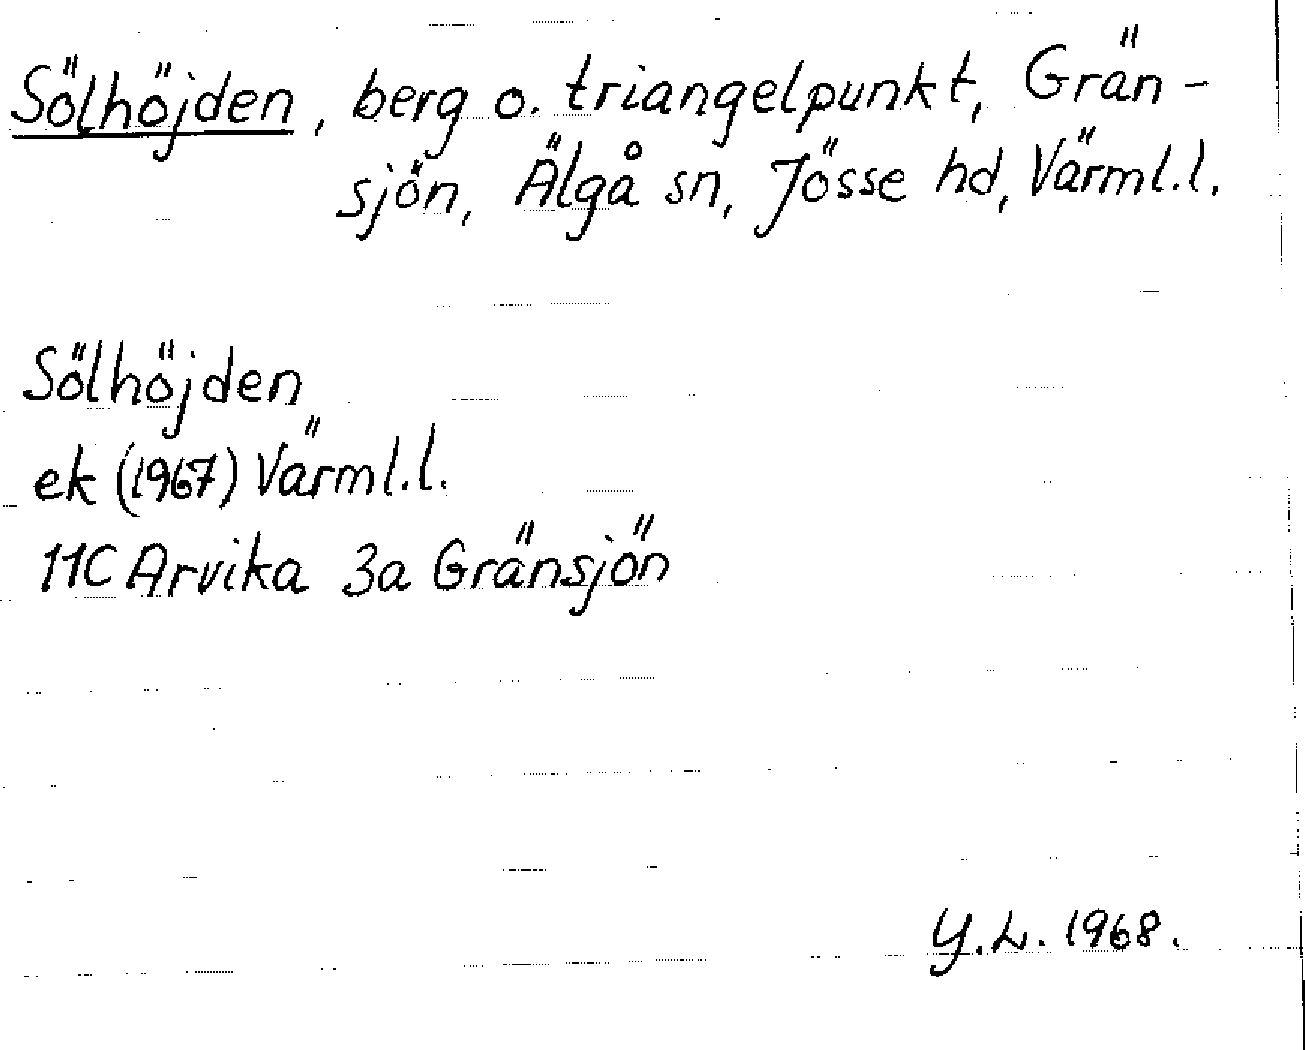 Sölhöjden, berg o. triangelpunkt, Grän-
sjön, Älgå sn, Jösse hd, Värml.l.
Sölhöjden
ek (1967) Värml.l.
11C Arvika 3a Gränsjön
Y.L. 1968.